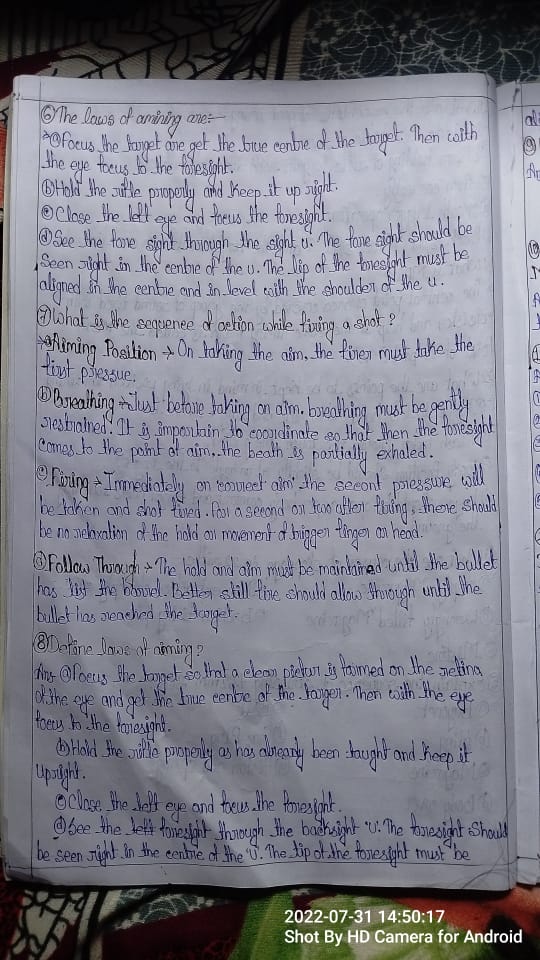 ⑥The laws of amining are:-
→ⓐFocus the target are get the true centre of the target. Then with
the eye focus to the foresight.
ⓑHold the rifle properly and keep it up right.
ⓒClose the left eye and focus the foresight.
ⓓSee the fore sight through the sight u. The fore sight should be
Seen right in the centre of the u. The lip of the foresight must be
aligned in the centre and in level with the shoulder of the u.
⑦What is the sequence of action while firing a shot?
→ⓐAiming Position → On taking the aim, the firer must take the
first pressue.
ⓑBreathing → Just before taking on aim. breathing must be gently
restrained. It is importain to coordinate so that then the foresight
comes to the point of aim, the beath is partially exhaled.
ⓒFiring → Immediately on 'correct aim' the secont pressure will
be taken and shot fired. For a second or two after firing, there should
be no relaxation of the hold or movement of trigger finger or head.
ⓓFollow Through → The hold and aim must be maintained until the bullet
has list the barrel. Better still fire should allow through until the
bullet has reached the target.
⑧Define laws of aiming?
Ans ⓐFocus the target so that a clean pictur is formed on the retina
of the eye and get the true centre of the target. Then with the eye
focus to the foresight.
ⓑHold the rifle properly as has already been taught and keep it
upright.
ⓒClose the left eye and focus the foresight.
ⓓSee the left foresight through the backsight 'U'. The foresight should
be seen right in the centre of the 'U'. The tip of the foresight must be
2022-07-31 14:50:17
Shot By HD Camera for Android